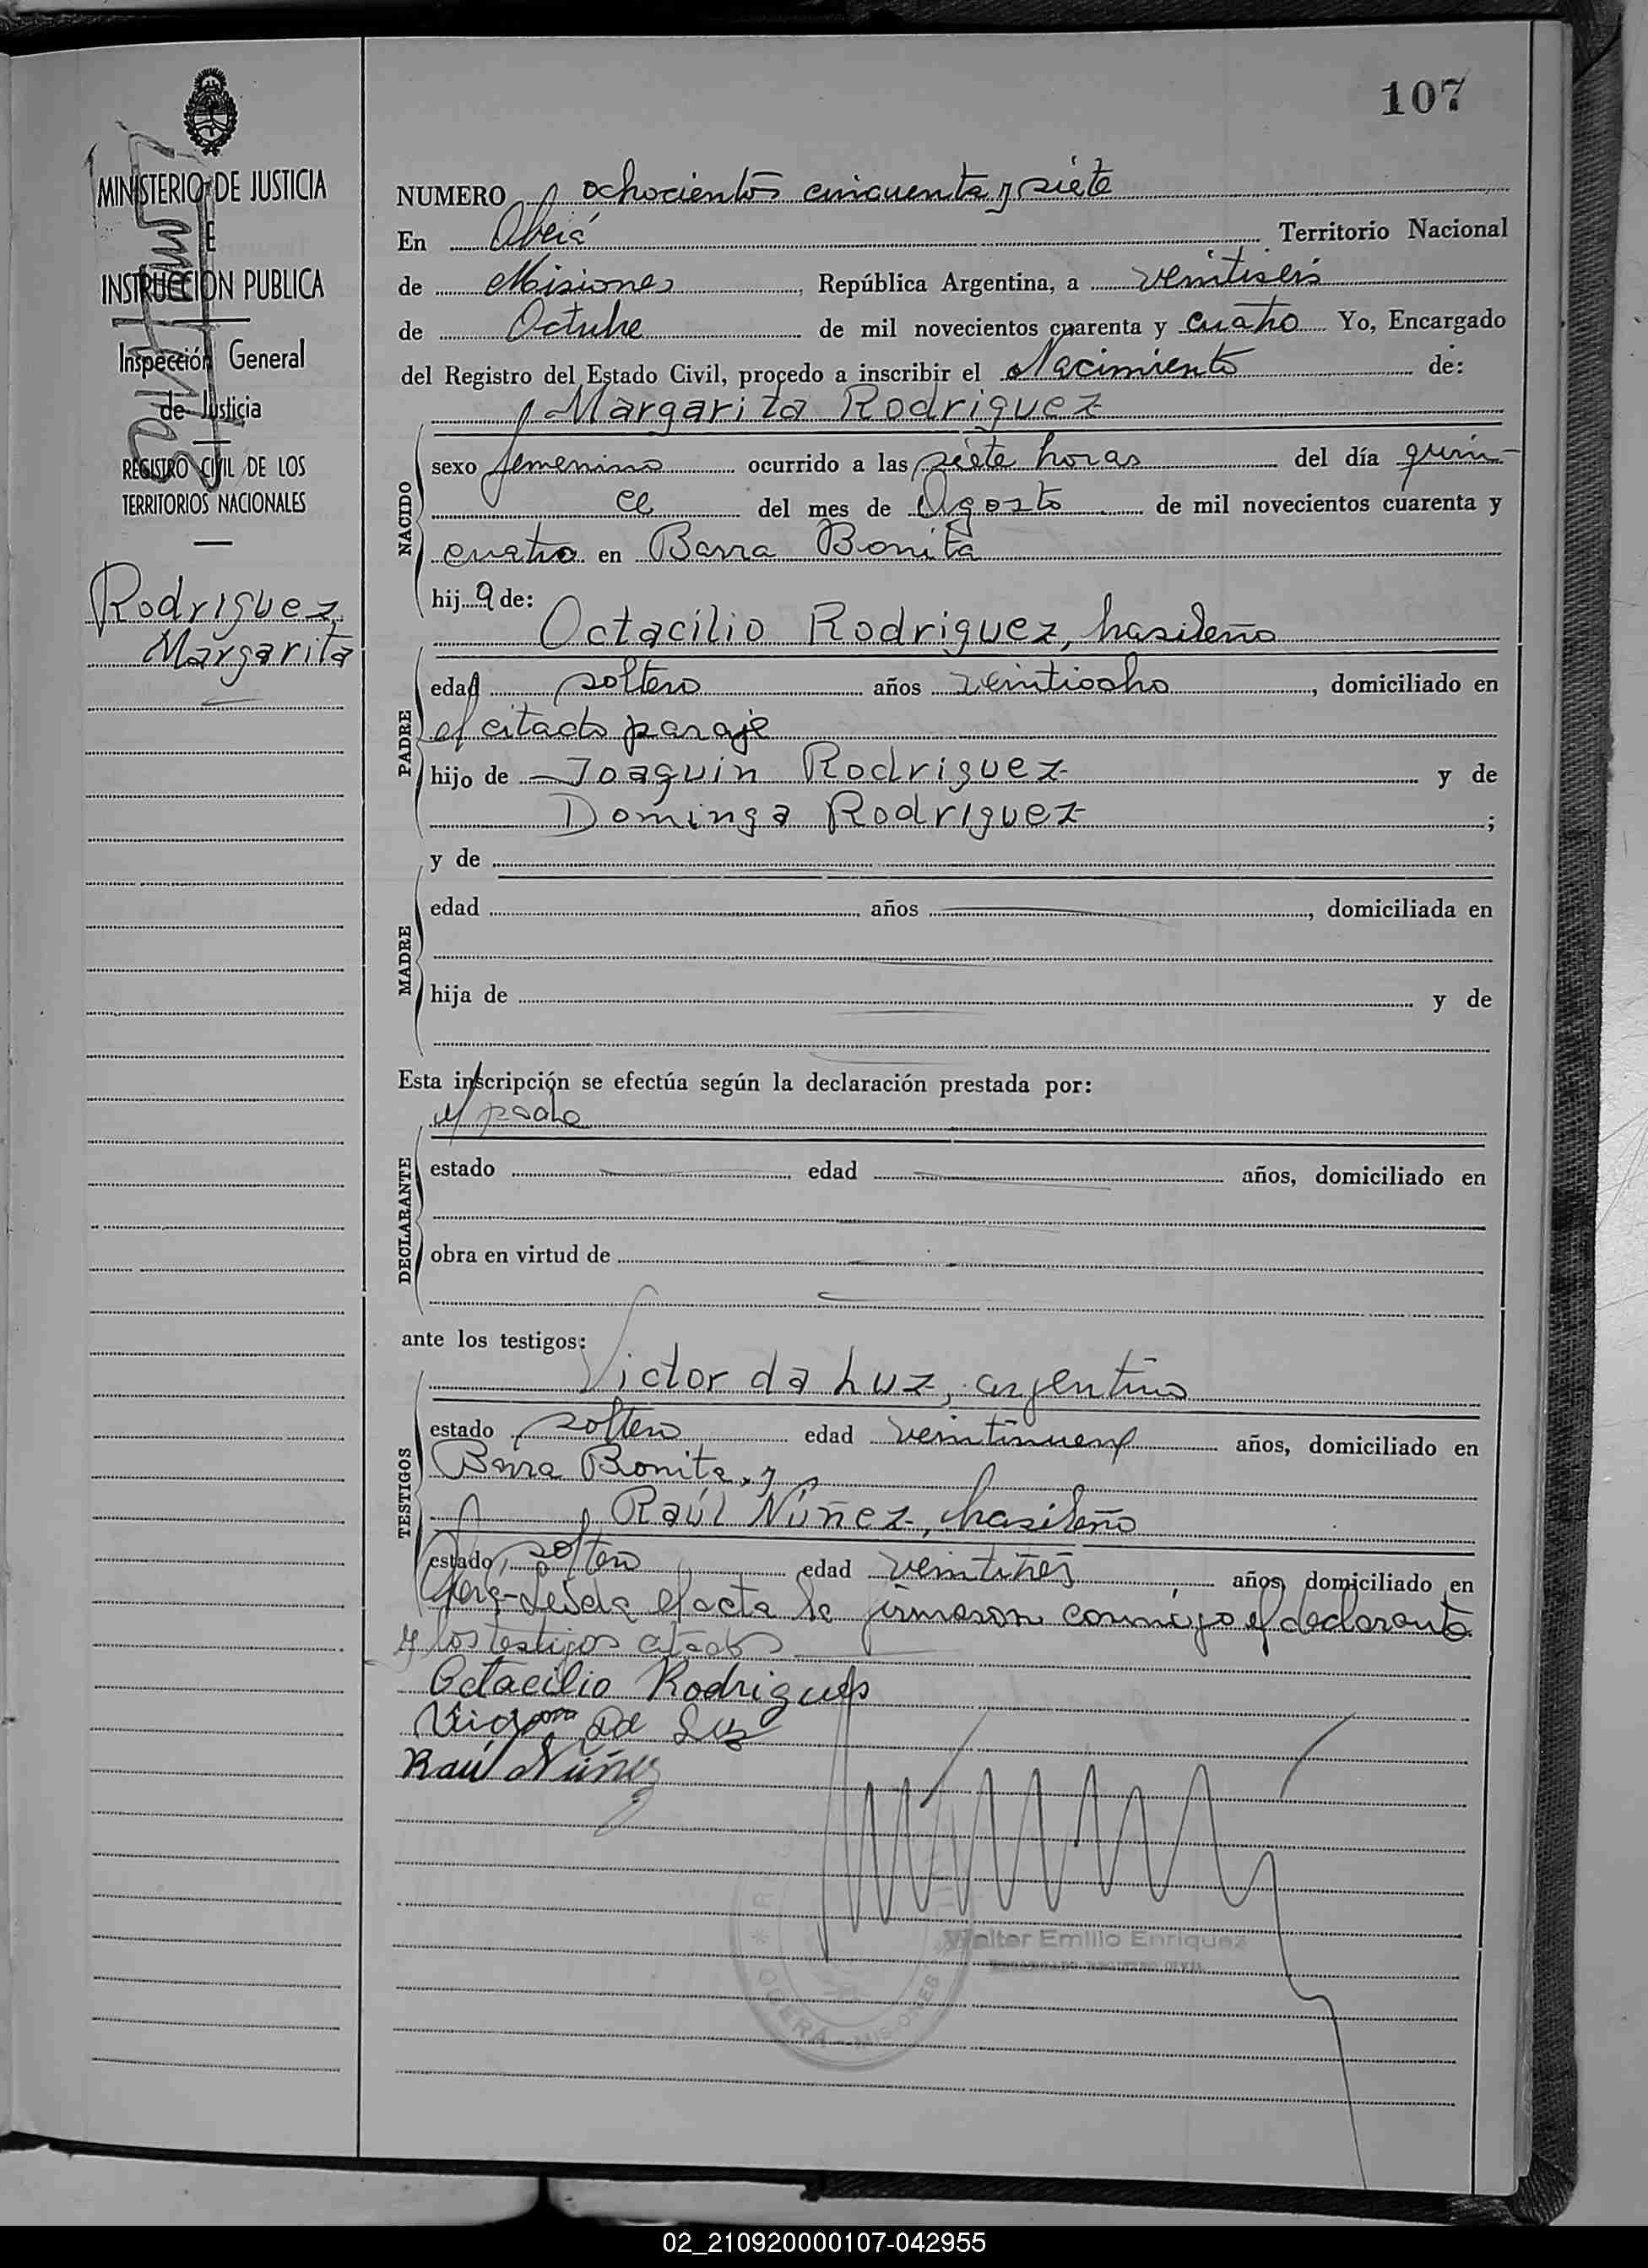 107
MINISTERIO DE JUSTICIA
E
INSTRUCCION PUBLICA
Inspección General
de Justicia
REGISTRO CIVIL DE LOS
TERRITORIOS NACIONALES
Rodriguez,
Margarita
NUMERO ochocientos cincuenta y siete
En Oberá Territorio Nacional
de Misiones, República Argentina, a veintiseis
de Octubre de mil novecientos cuarenta y cuatro Yo, Encargado
del Registro del Estado Civil, procedo a inscribir el Nacimiento de:
Margarita Rodriguez
NACIDO
sexo femenino ocurrido a las siete horas del día quin-
ce del mes de Agosto de mil novecientos cuarenta y
cuatro en Barra Bonita
hij a de:
Octacilio Rodriguez, brasileño
PADRE
edad soltero años veintiocho, domiciliado en
el citado paraje
hijo de Joaquin Rodriguez y de
Dominga Rodriguez;
y de
MADRE
edad años, domiciliada en
hija de y de
Esta inscripción se efectúa según la declaración prestada por:
el padre
DECLARANTE
estado edad años, domiciliado en
obra en virtud de
ante los testigos:
Victor da Luz, argentino
TESTIGOS
estado soltero edad veintinueve años, domiciliado en
Barra Bonita, y
Raúl Núñez, brasileño
estado soltero edad veintitres años, domiciliado en
Leida el acta la firmaron conmigo el declarante
y los testigos citados
Octacilio Rodrigues
Da Luz
Raúl Núñez
Walter Emilio Enriquez
ENCARGADO REGISTRO CIVIL
OBERA - MISIONES
02_210920000107-042955